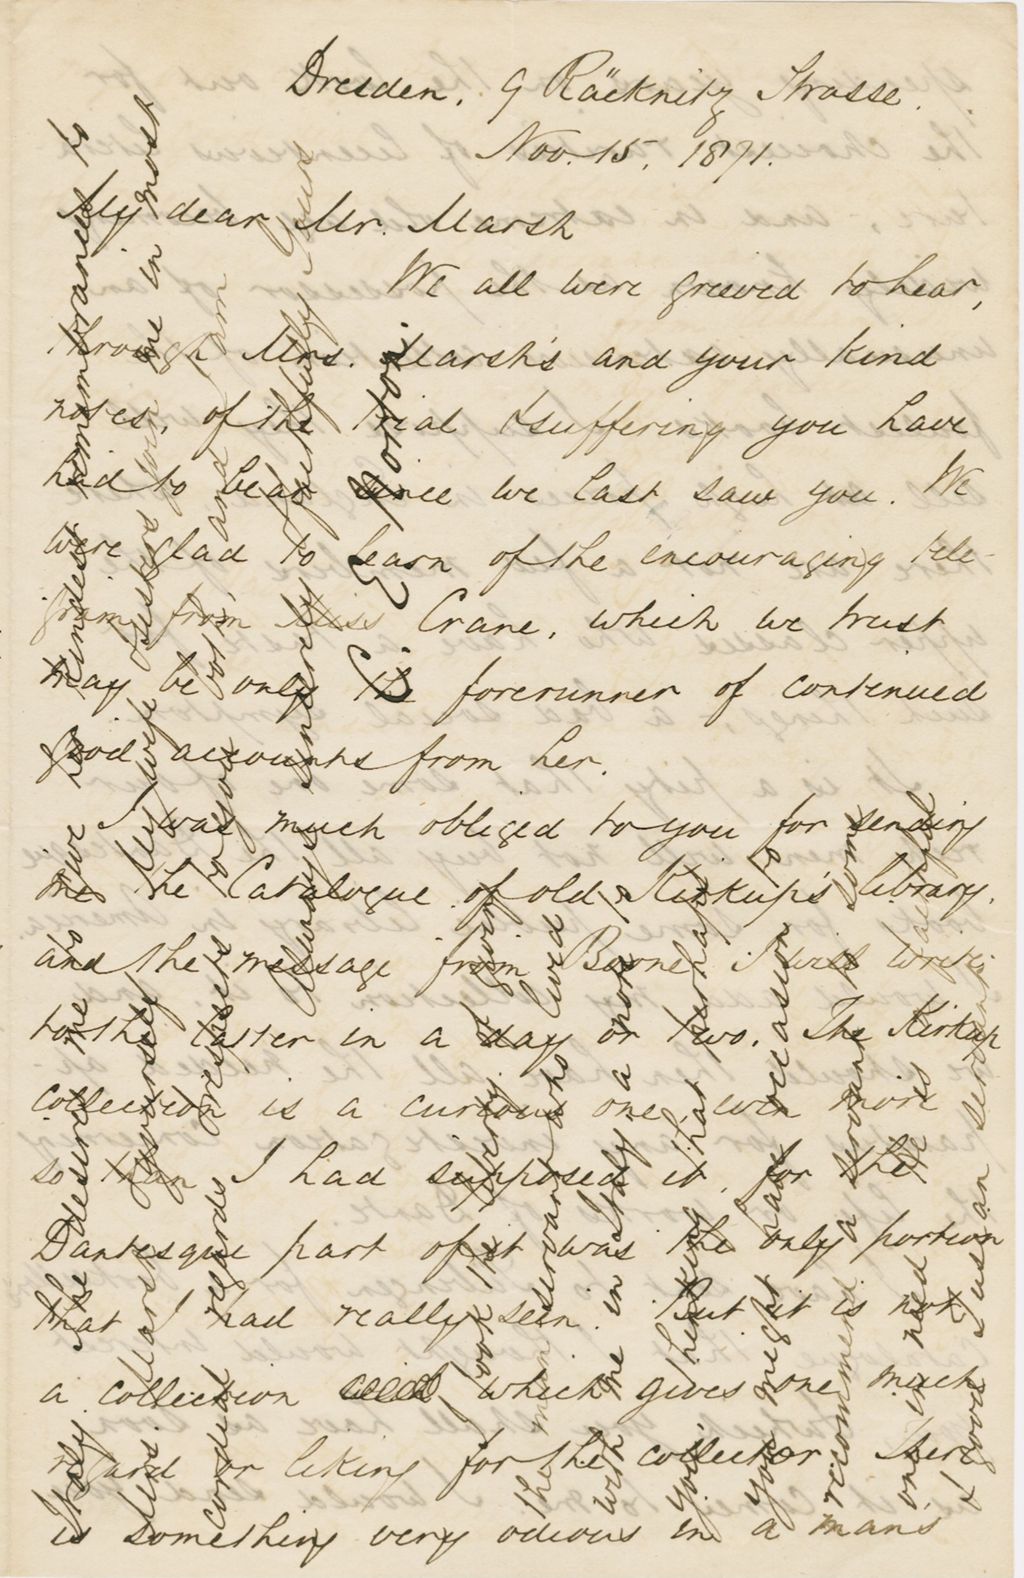 Dresden, 9 Räcknitz Strasse.
Nov. 15, 1871.
My dear Mr. Marsh
We all were grieved to hear,
through Mrs. Marsh's and your kind
notes, of the trial & suffering you have
had to bear since we last saw you. We
were glad to learn of the encouraging tele-
gram from Miss Crane, which we trust
may be only the forerunner of continued
good accounts from her.
I was much obliged to you for sending
me the Catalogue of old Kirkup's library,
and the message from Boone. I will write
to the latter in a day or two. The Kirkup
collection is a curious one, even more
so than I had supposed it, for the
Dantesque part of it was the only portion
that I had really seen. But it is not
a collection which gives one much
regard or liking for the collector. There
is something very odious in a man's
Italy desires me to give kindest remembrances to
Mrs. Marsh & yourself. My wife & sisters join me in most
cordial regards & respects to you both, and I am
Always sincerely & gratefully Yours
C. E. Norton
I took the liberty of giving to
the man servant who lived
with me in Italy a note to
you, thinking that perhaps
you might have occasion to
recommend a servant to some
one in need of a faithful
& good Tuscan servant